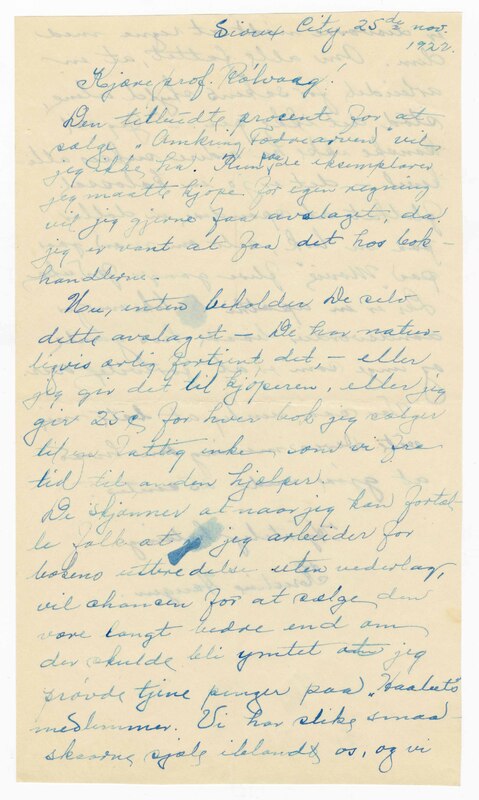 Sioux City, 25de nov.
1922.
Kjære prof. Rølvaag!
Den tilbudte procent for at
sælge "Omkring Fædrearven" vil
jeg ikke ha. Kun paa de eksemplarer
jeg maatte kjøpe for egen regning
vil jeg gjerne faa avslaget, da
jeg er vant at faa det hos bok-
handlerne.
Nu, enten beholder De selv
dette avslaget — De har natur-
ligvis ærlig fortjent det, — eller
jeg gir det til kjøperen, eller jeg
gir 25¢ for hver bok jeg sælger
til en fattig enke som vi fra
tid til anden hjælper.
De skjønner at naar jeg kan fortæl-
le folk at jeg arbeider for
bokens utbredelse uten vederlag,
vil chansen for at sælge den
være langt bedre end om
der skulde bli ymtet om jeg
prøvde tjene penger paa "Haalets"
medlemmer. Vi har slike smaa-
skaarne sjæle iblandt os, og vi